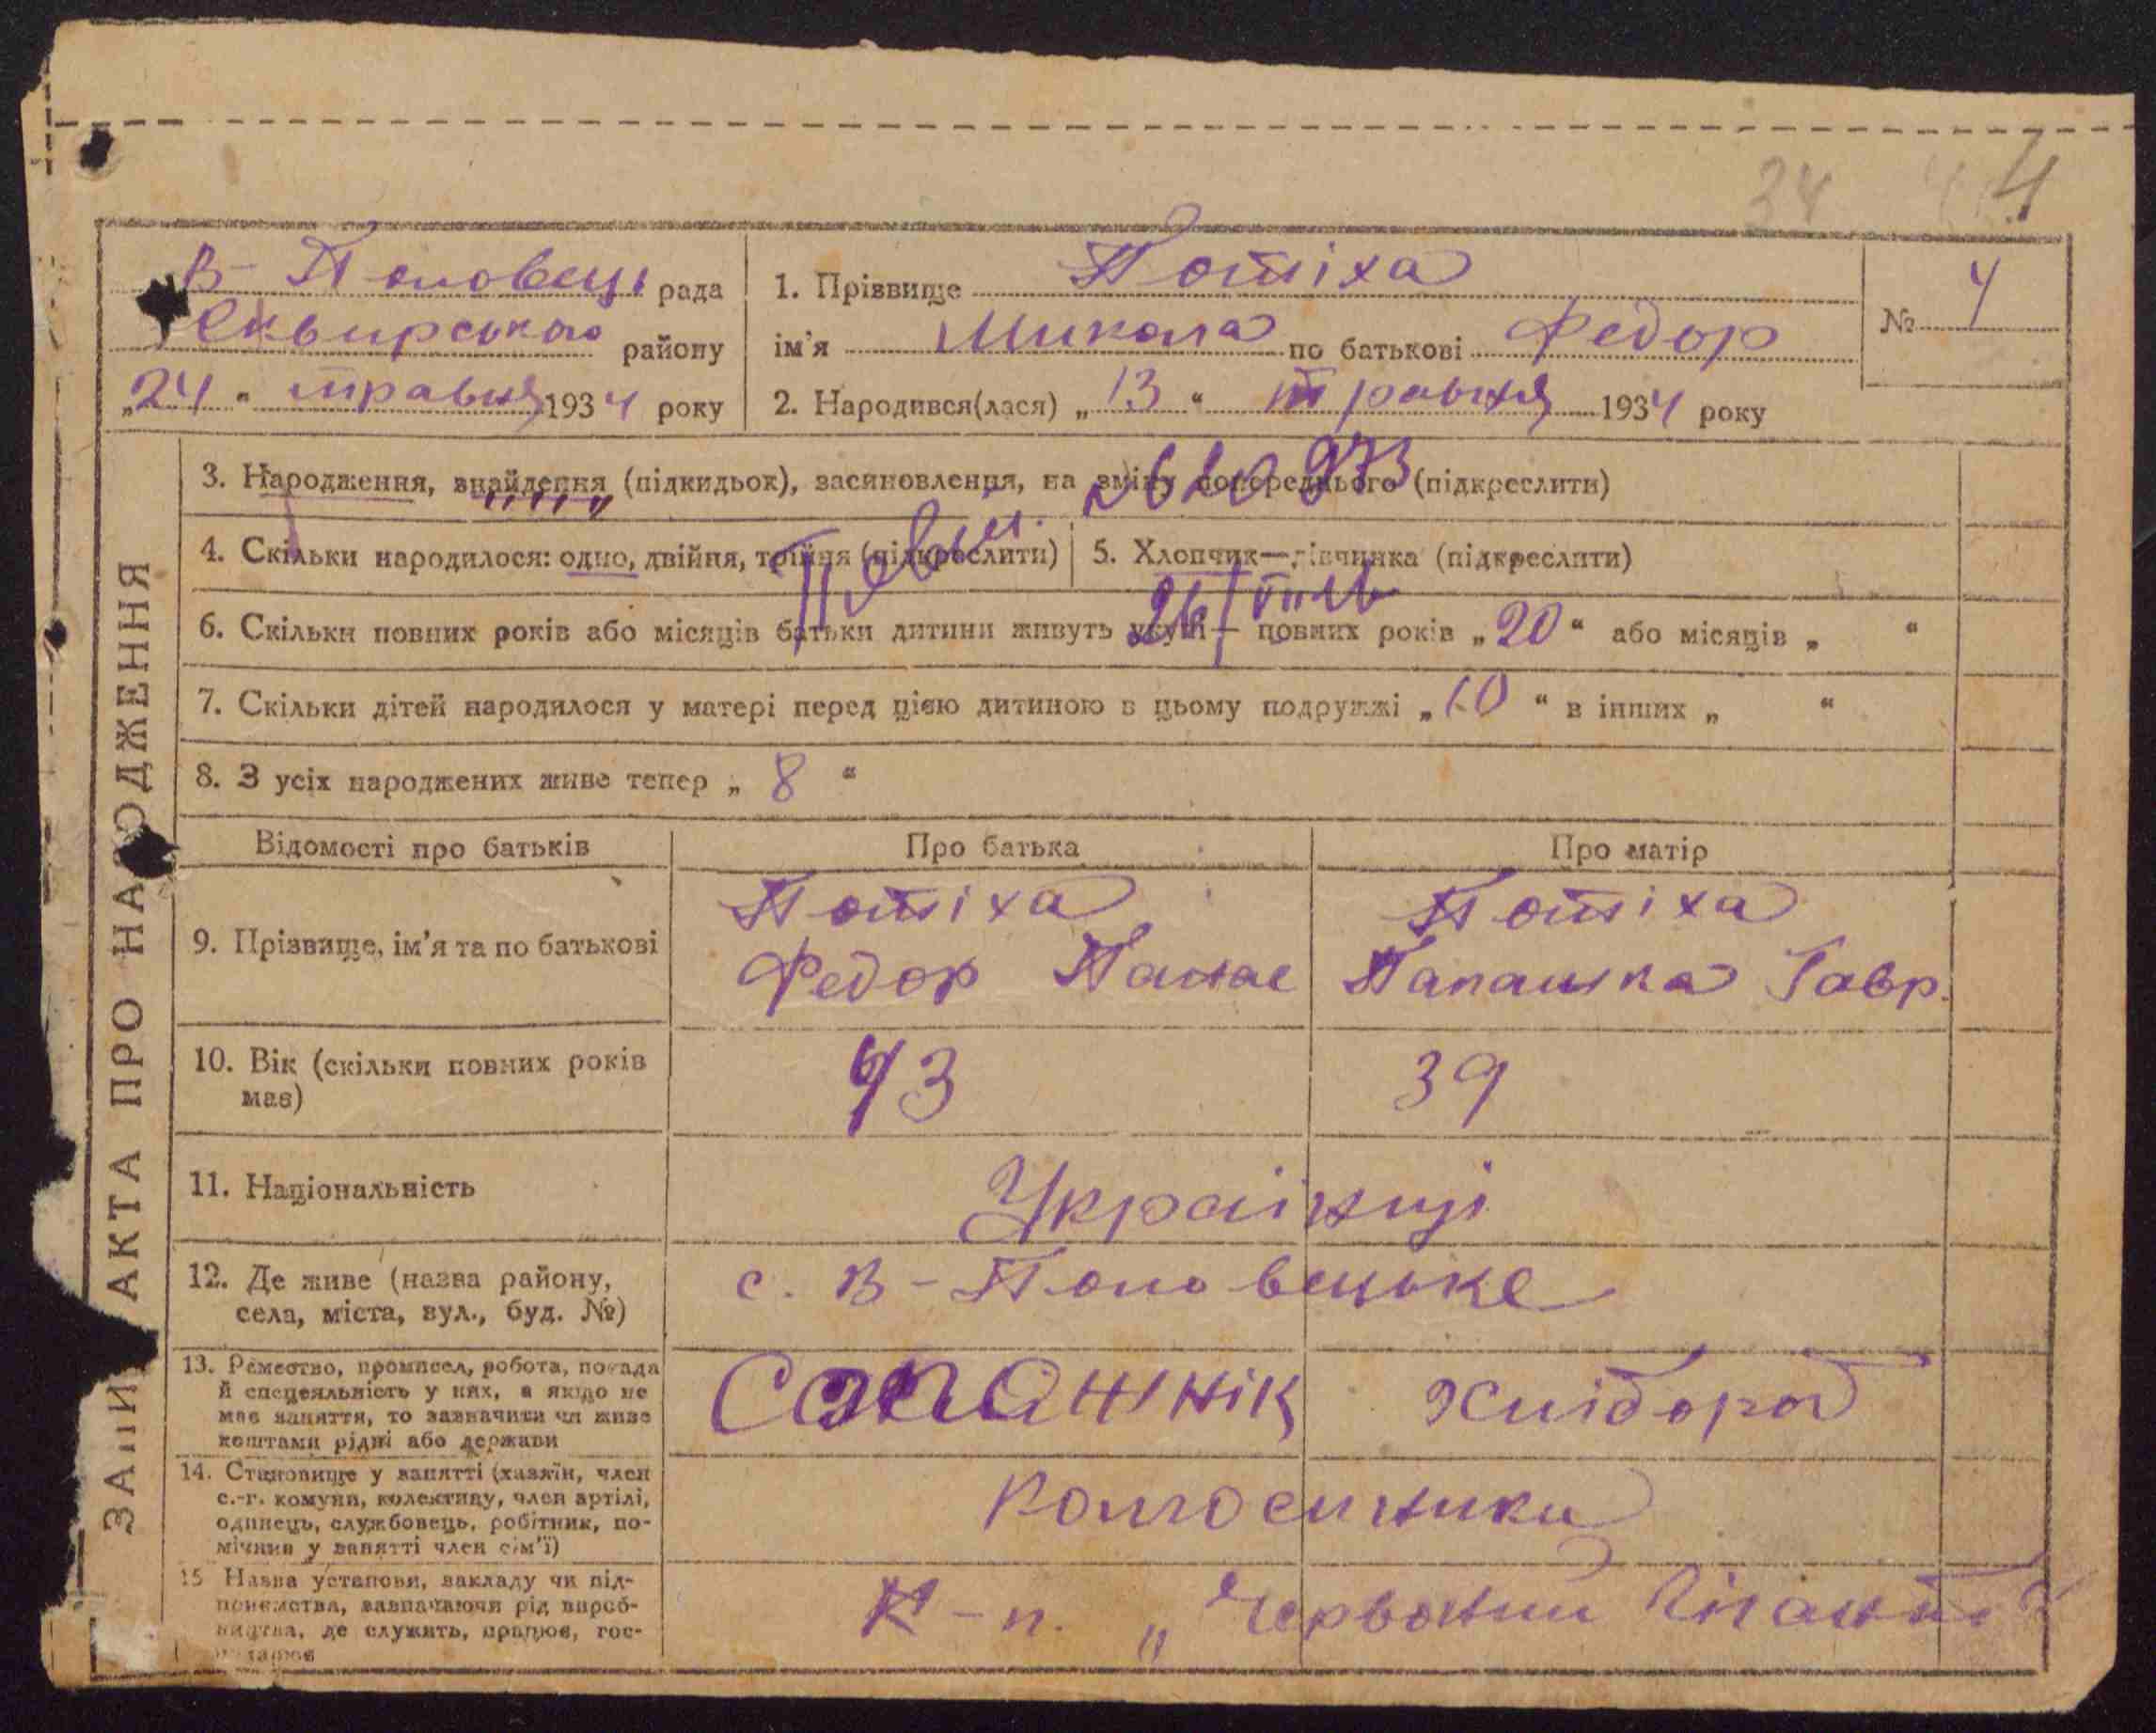 34 4
В-Половець рада
Сквирського району
„24“ травня 1934 року
1. Прізвище Потіха
ім’я Микола по батькові Федор
2. Народився(лася) „13“ травня 1934 року
№ 4
ЗАПИ АКТА ПРО НАРОДЖЕННЯ
3. Народження, знайдення (підкидьок), засиновлення, на зміну попереднього (підкреслити)
4. Скільки народилося: одно, двійня, трійня (підкреслити)
5. Хлопчик—дівчинка (підкреслити)
6. Скільки повних років або місяців батьки дитини живуть укупі— повних років „20“ або місяців „ “
7. Скільки дітей народилося у матері перед цією дитиною в цьому подружжі „10“ в інших „ “
8. З усіх народжених живе тепер „8“
Відомості про батьків Про батька Про матір
9. Прізвище, ім’я та по батькові
Потіха
Федор Панас
Потіха
Параска Гавр.
10. Вік (скільки повних років
має)
43 39
11. Національність Українці
12. Де живе (назва району,
села, міста, вул., буд. №)
с. В-Половецьке
13. Ремество, промисел, робота, посада
й спеціяльність у них, а якщо не
має заняття, то зазначити чи живе
коштами рідні або держави
Сапожнік Хлібороб
14. Становище у занятті (хазяїн, член
с.-г. комуни, колективу, член артілі,
одинець, службовець, робітник, по-
мічник у занятті член сім’ї)
Колгоспники
15 Назва установи, закладу чи під-
приємства, зазначаючи рід вироб-
ництва, де служить, працює, гос-
подарює
К-п. „Червоний Гігант“